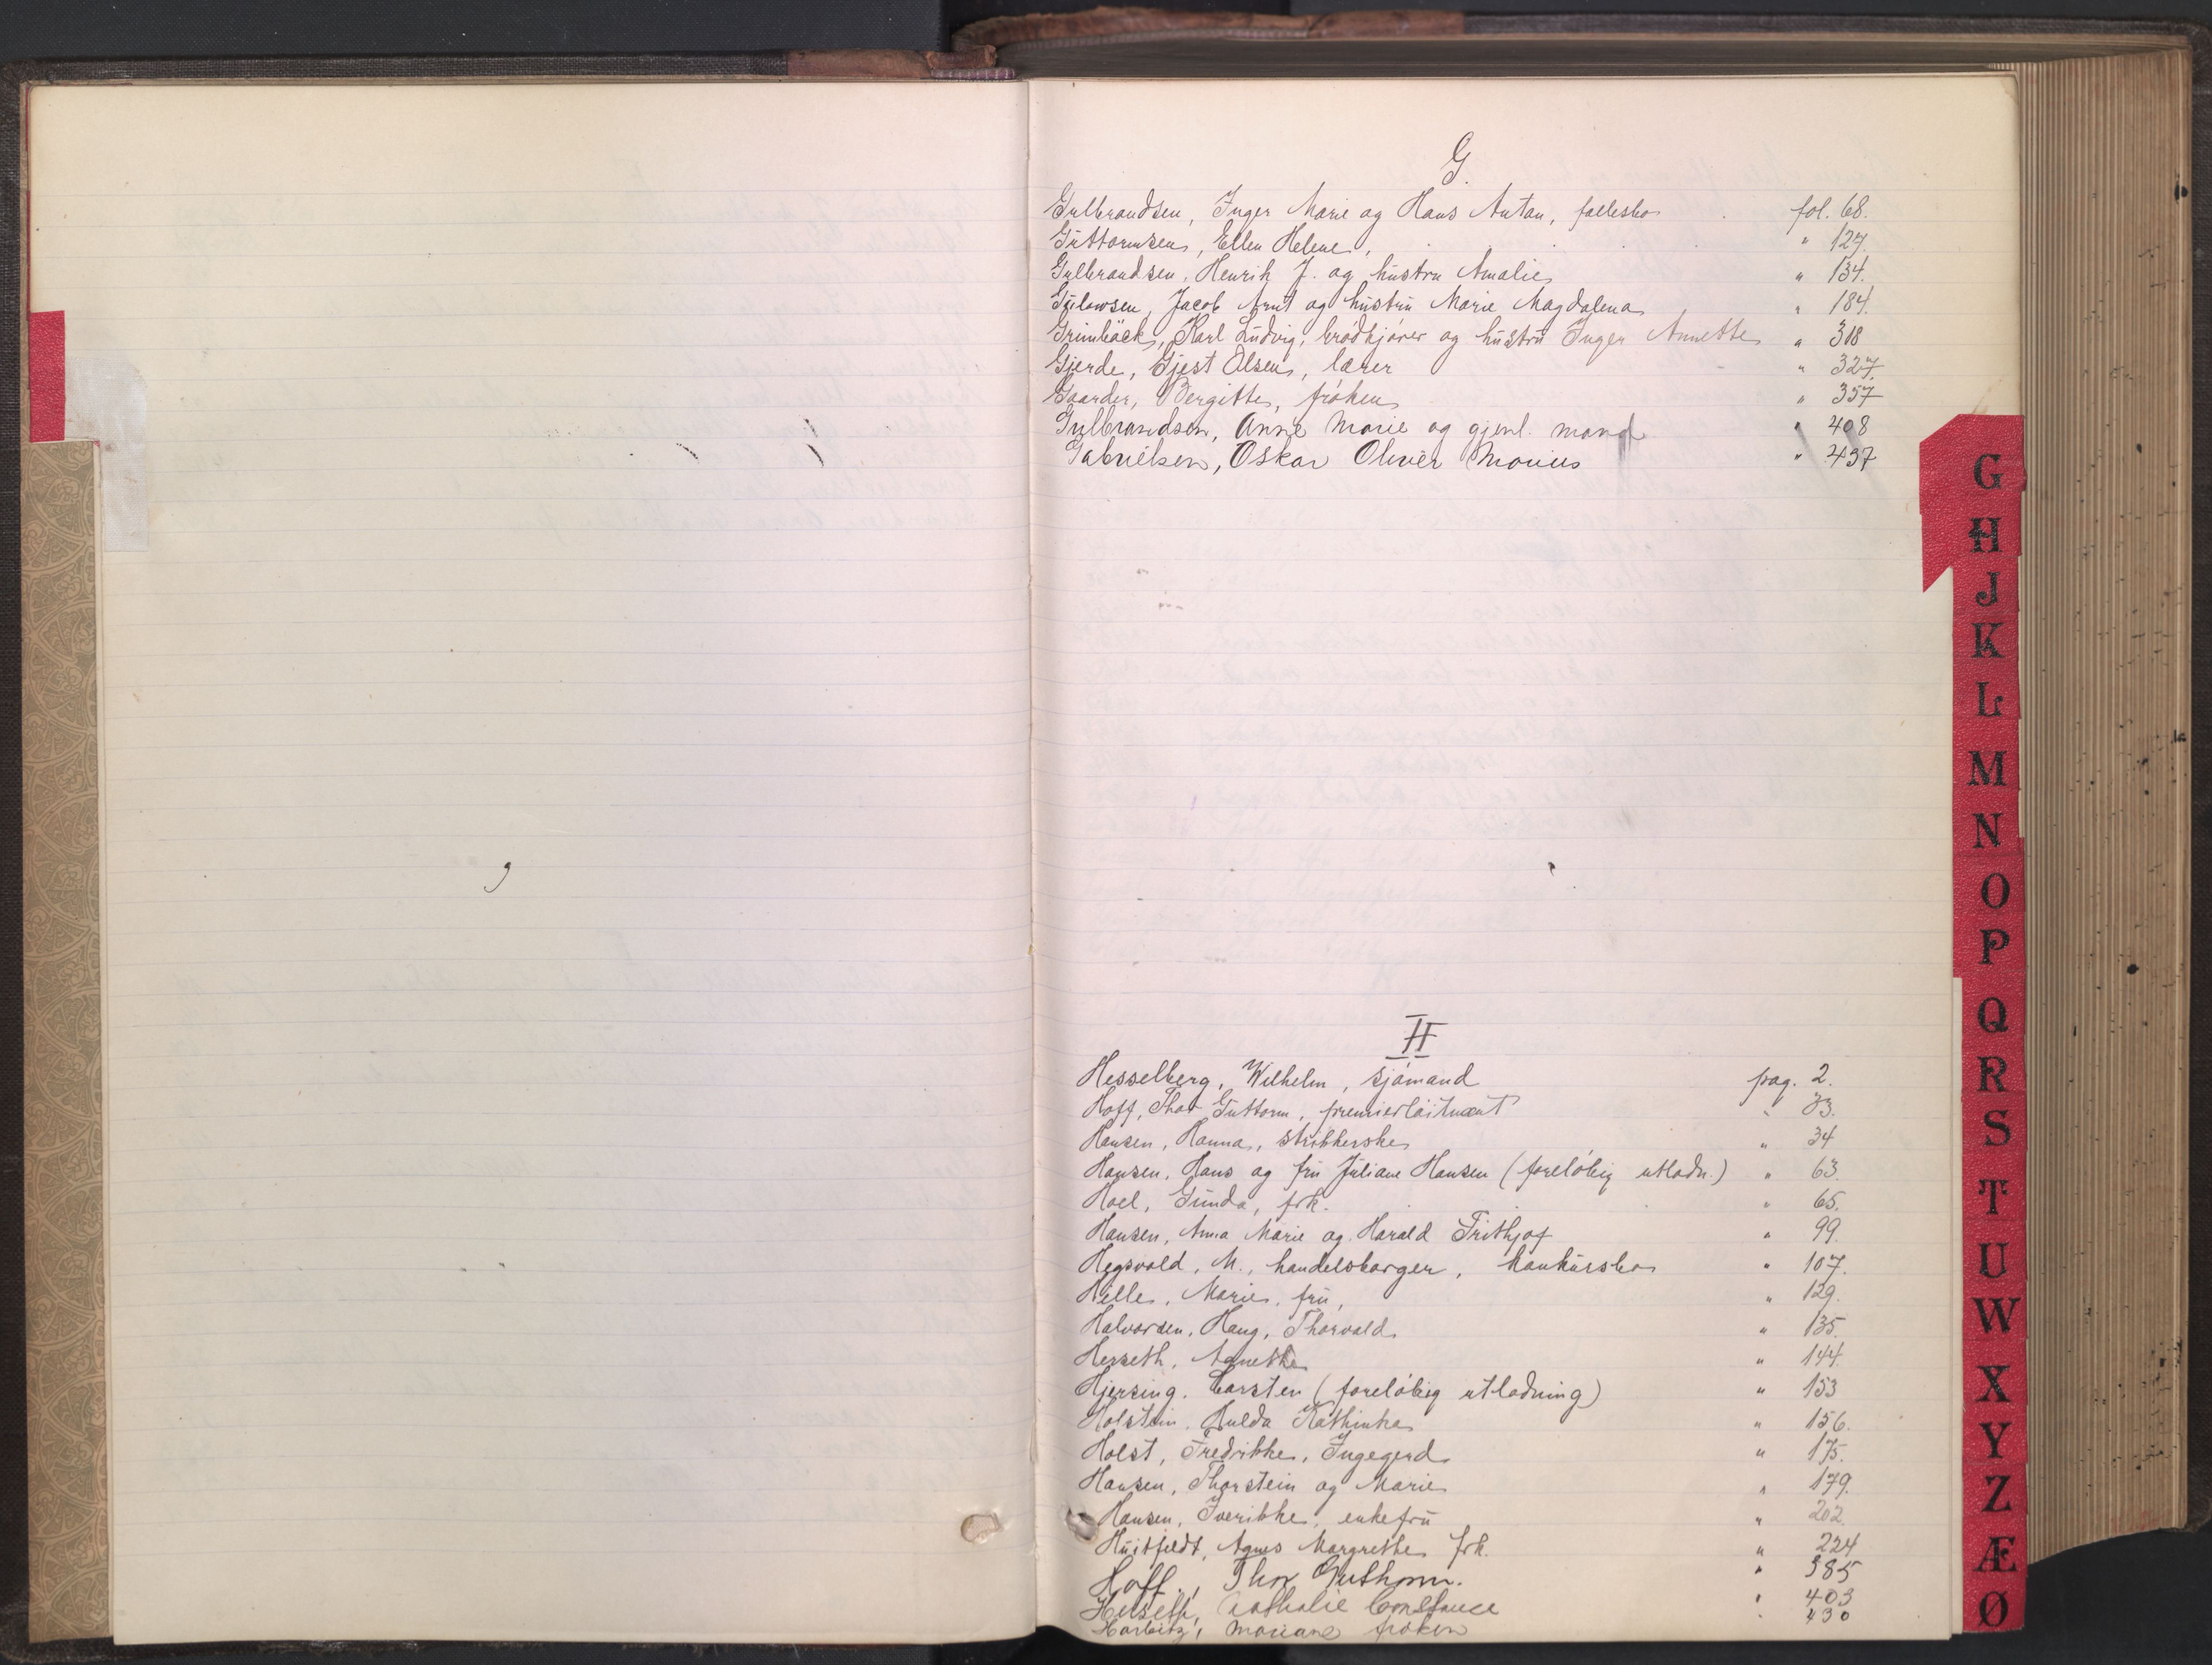 G.
Gulbrandsen, Inger Marie og Hans Anton, fællesbo fol. 68.
Guttormsen, Ellen Helene, " 127.
Gulbrandsen, Henrik J. og hustru Amalie " 134.
Gulowsen, Jacob Arnt og hustru Marie Magdalena " 184.
Grimbäck, Karl Ludvig, brødkjører og hustru Inger Annette " 318
Gjerde, Gjest Olsen, lærer " 327.
Gaarder, Bergitte, frøken " 357
Gulbrandsen, Anne Marie og gjenl. mand " 408
Gabrielsen, Oskar Oliver Marius " 437
H
Hesselberg, Wilhelm, sjømand pag. 2.
Hoff, Thor Guttorm, premierløitnant " 33.
Hansen, Hanna, strikkerske " 34
Hansen, Hans og fru Juliane Hansen (foreløbig utlodn.) " 63.
Hoel, Gunda, frk. " 65.
Hansen, Anna Marie og Harald Frithjof " 99.
Hegsvold, M., handelsborger, konkursbo " 107.
Hille, Marie, fru, " 129.
Halvorsen, Haug, Thorvald. " 135.
Herseth, Agnethe " 144.
Hjersing, Carsten (foreløbig utlodning) " 153
Holstein, Hulda Kathinka " 156.
Holst, Fredrikke, Ingegerd " 175.
Hansen, Thorstein og Marie " 179.
Hansen, Iverikke, enkefru " 202.
Huitfeldt, Agnes Margrethe frk. " 224
Hoff, Thor Guthorm. " 385
Herseth, Nathalie Constance " 403
Harbitz, Mariane frøken " 430
G
H
J
K
L
M
N
O
P
Q
R
S
T
U
W
X
Y
Z
Æ
Ø